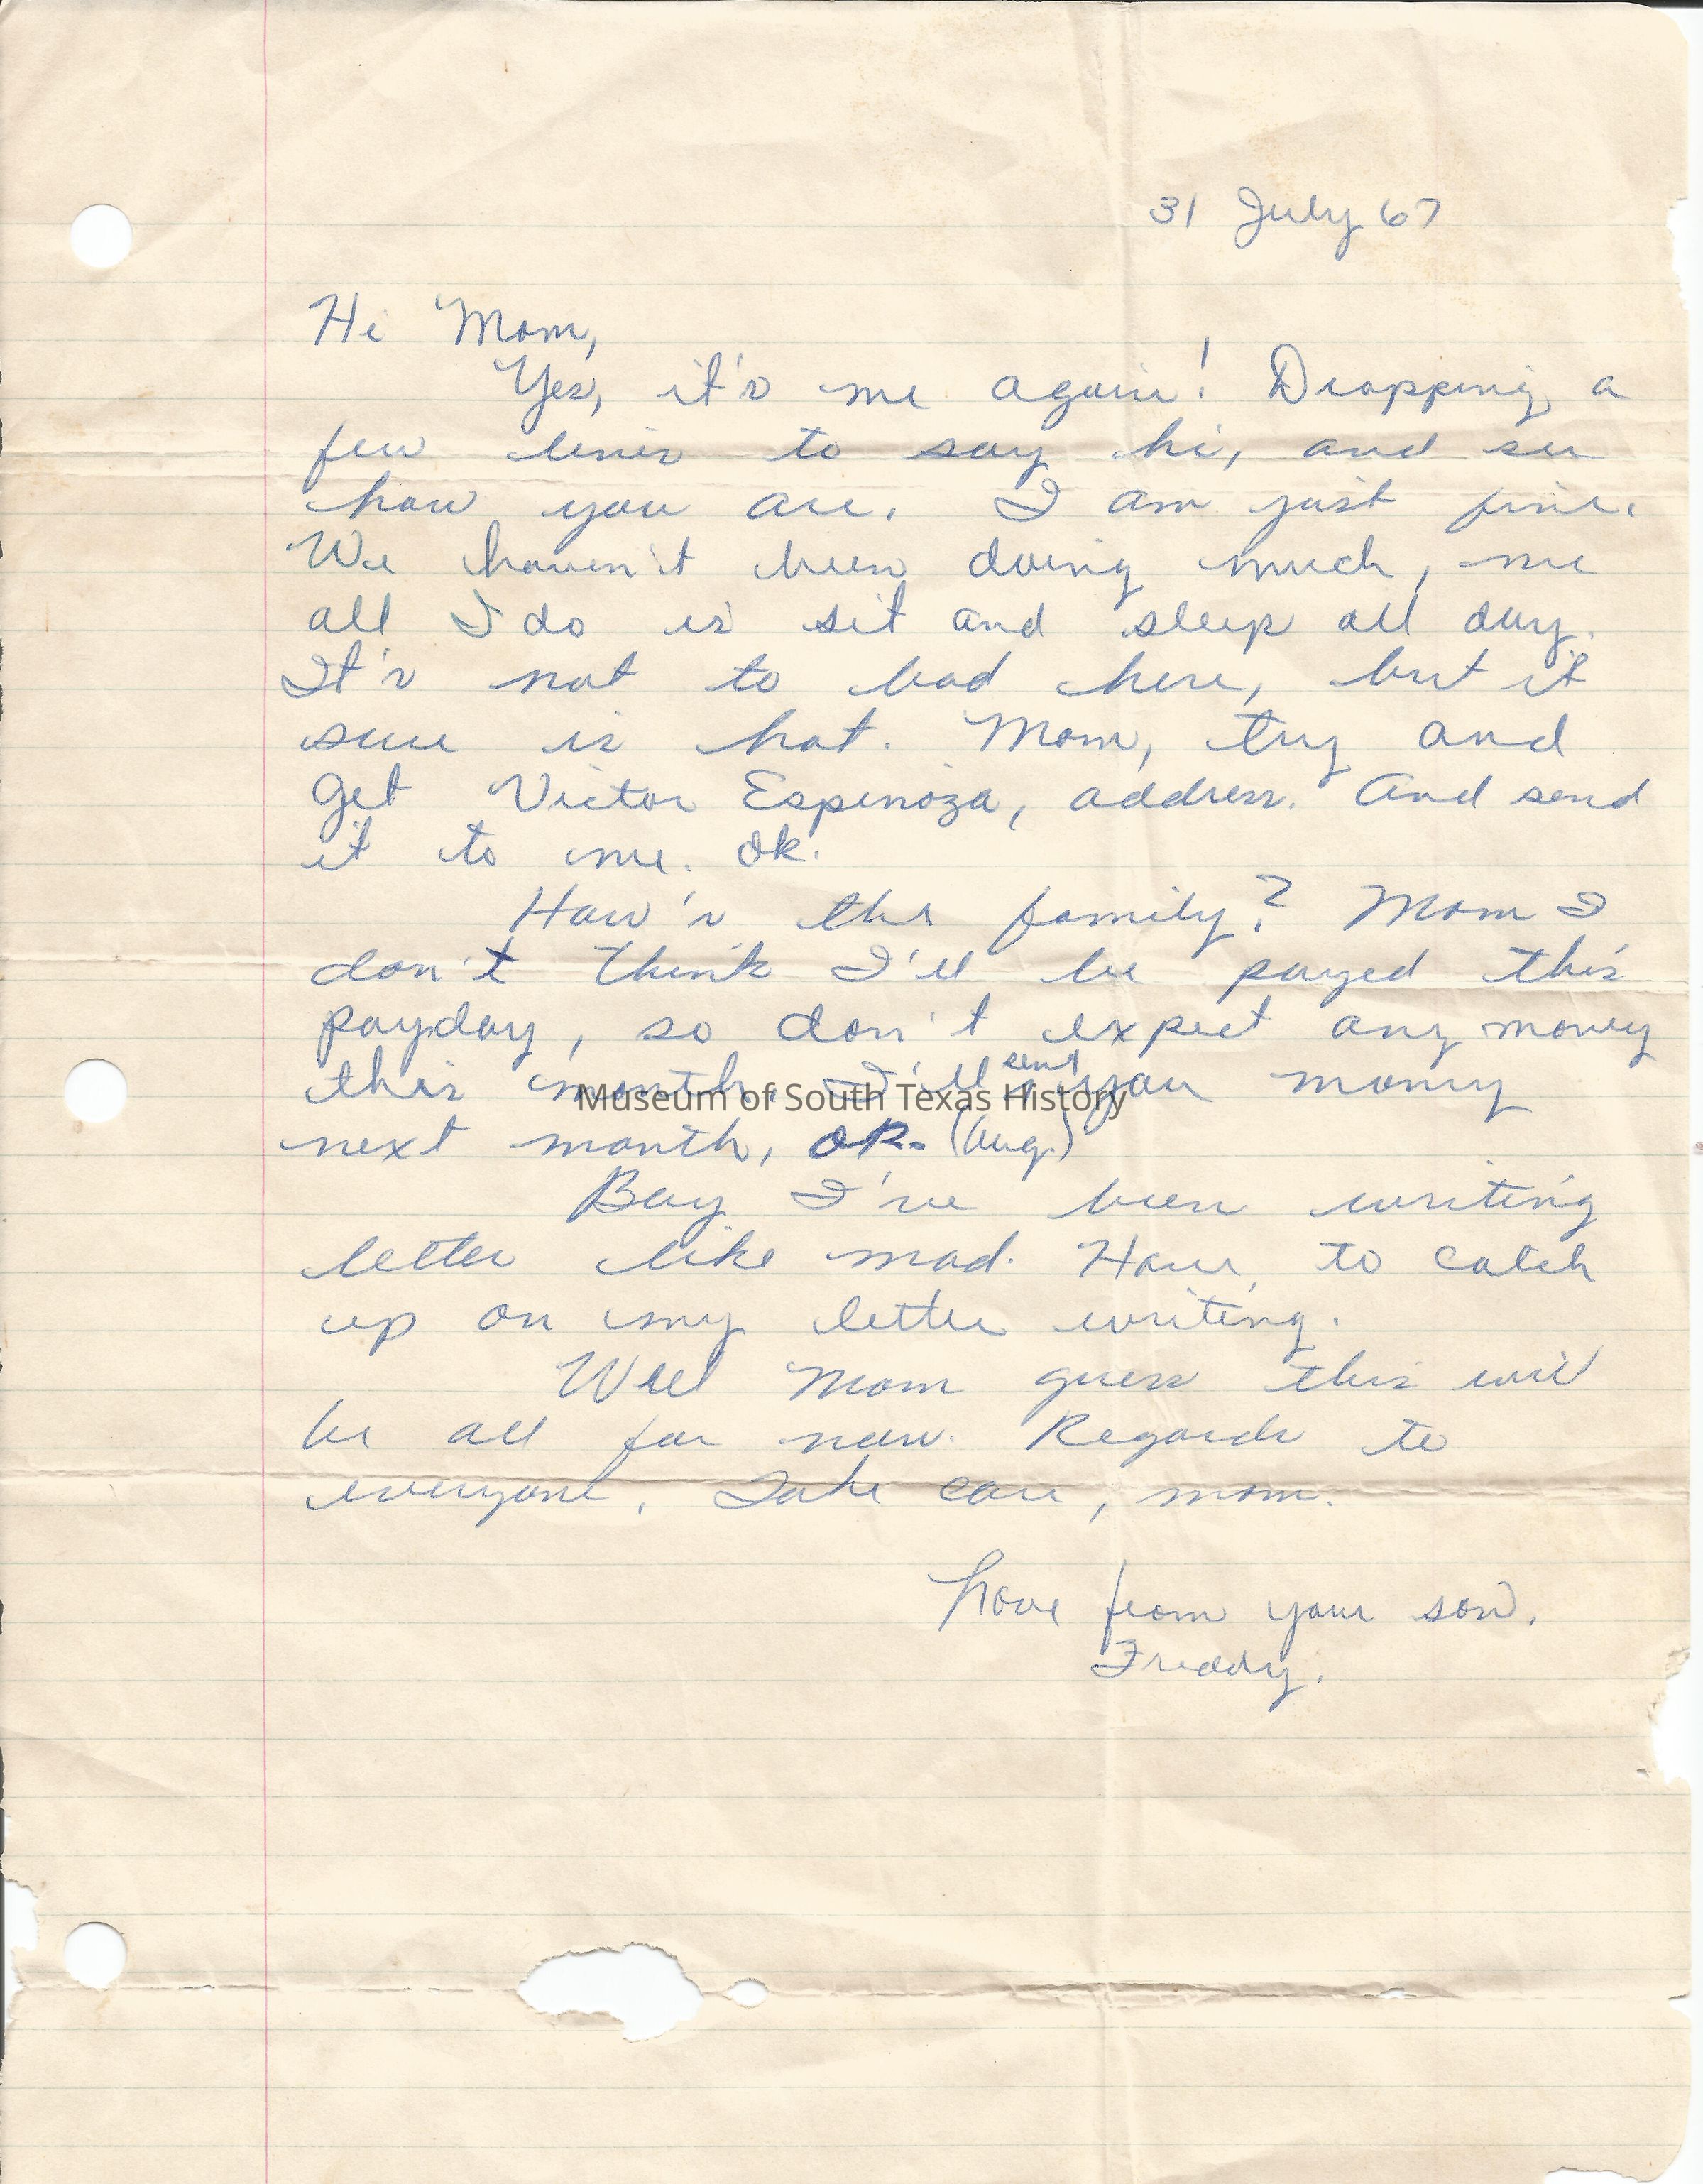 31 July 67
Hi Mom,
Yes, it's me again! Dropping a
few lines to say hi, and see
how you are. I am just fine.
We haven't been doing much, me
all I do is sit and sleep all day.
It's not to bad here, but it
sure is hot. Mom, try and
get Victor Espinoza, address. And send
it to me. Ok.
How's the family? Mom I
don't think I'll be payed this
payday, so don't expect any money
this month. I'll sent you money
next month, OK. (Aug.)
Museum of South Texas History
Boy I've been writing
letter like mad. Have, to catch
up on my letter writing.
Well Mom guess this will
be all for now. Regards to
everyone. Take care, mom.
Love from your son.
Freddy.